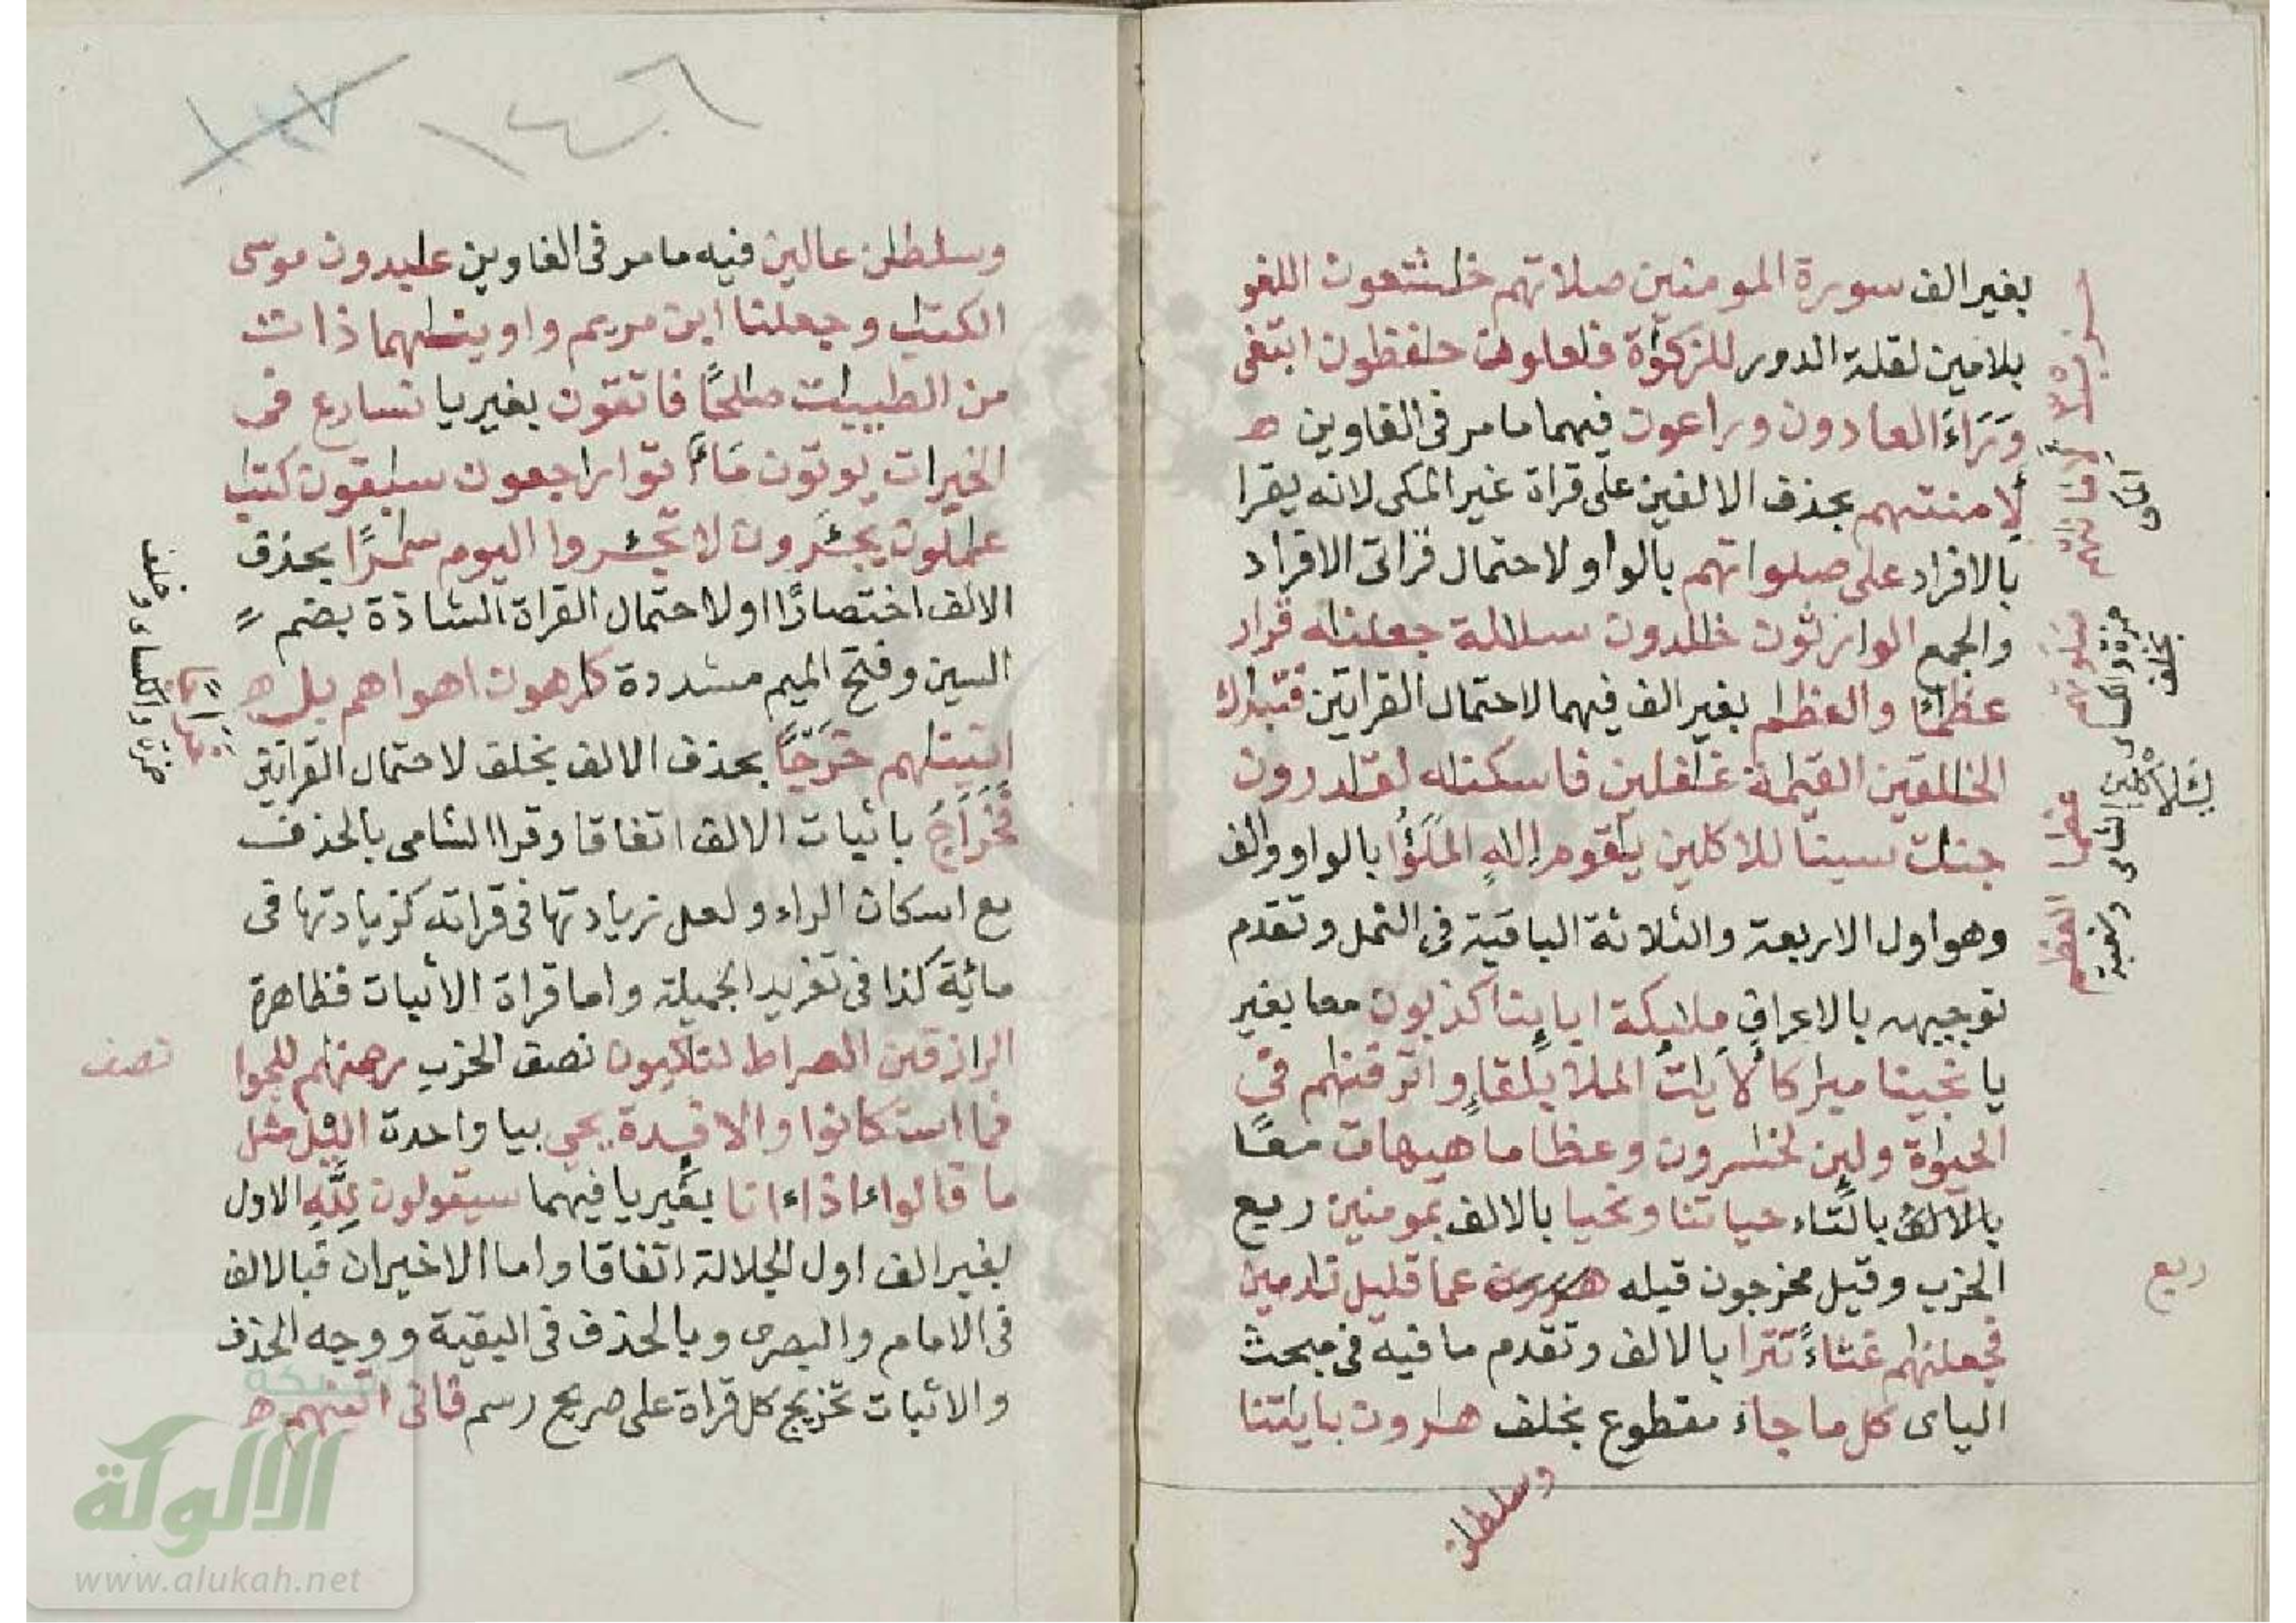 بغير الف سورة المومنين صلاتهم خٰشعون اللغو
بلامين لقلة الدور للزكوٰة فٰعلون حٰفظون ابتغى
وَرَاءَ العادون وراعون فيهما ما مر فى الغاوين ه
لأمنتهم بحذف الالفين على قراة غير المكى لانه يقرا
بالافراد على صلواتهم بالواو ولاحتمال قراتى الافراد
والجمع الوارثون خٰلدون سلٰلة جعلنٰه قرار
عظٰمًا والعظٰم بغير الف فيهما لاحتمال القراتين فتبٰرك
الخٰلقين القيٰمة غٰفلين فاسكنٰه لقٰدرون
جنٰت سينا للاكلين يٰقوم إلهٍ المَلَؤُا بالواو والف
وهو اول الاربعة والثلاثة الباقية فى النمل وتقدم
توجيهه بالاعراف ملٰيكة اباينا كذبون معا بغير
يا نجينا مباركا لأيٰت الملا بلقاءِ واترفنٰهم فى
الحيوٰة ولين لخٰسرون وعظاما هيهات معًا
بالالف بالتاء حياتنا ونحيا بالالف بمومنين ربع
الحزب وقيل مخرجون قيله عما قليل نٰدمين
فجعلنٰهم غثاءً تترا بالالف وتقدم ما فيه فى مبحث
الياى كل ما جاء مقطوع بخلف هٰرون بايٰتنا
وسلطٰن
ربع
عظما العظم
وسلطٰن عالين فيه ما مر فى الغاوين عٰبدون موسى
الكتٰب وجعلنا ابن مريم واوينٰهما ذات
من الطيبٰت صٰلحًا فاتقون بغير يا نسارع فى
الخيرات يوتون مَاءً تَوا راجعون سٰبقون كتٰب
عٰملون يجـَٔرون لا تجـَٔروا اليوم سٰمرًا بحذف
الالف اختصارًا او لاحتمال القراة الشاذة بضم
السين وفتح الميم مشددة كٰرهون اهواهم بل ه
اتينٰهم خَرٰجًا بحذف الالف بخلف لاحتمال القراتين
فَخَرَاجُ باثبات الالف اتفاقا وقرا الشامى بالحذف
مع اسكان الراء ولعل زيادتها فى قراته كزيادتها فى
مائة كذا فى تغريد الجميلة واما قراة الاثبات فظاهرة
الرازقين الصراط لنٰكبون نصف الحزب رحمنٰهم للجوا
فما استكانوا والافـِٔدة يحى بيا واحدة اليل مثل
ما قالوا ءاذا ءانا بغير يا فيهما سيقولون لِلَّهِ الاول
بغير الف اول الجلالة اتفاقا واما الاخيران فبالالف
فى الامام والبصرى وبالحذف فى البقية ووجه الحذف
والاثبات تخريج كل قراة على صريح رسم فانى اتينٰهم ه
نصف
حمزة والكساى وخلف
شبكة
الالوكة
www.alukah.net